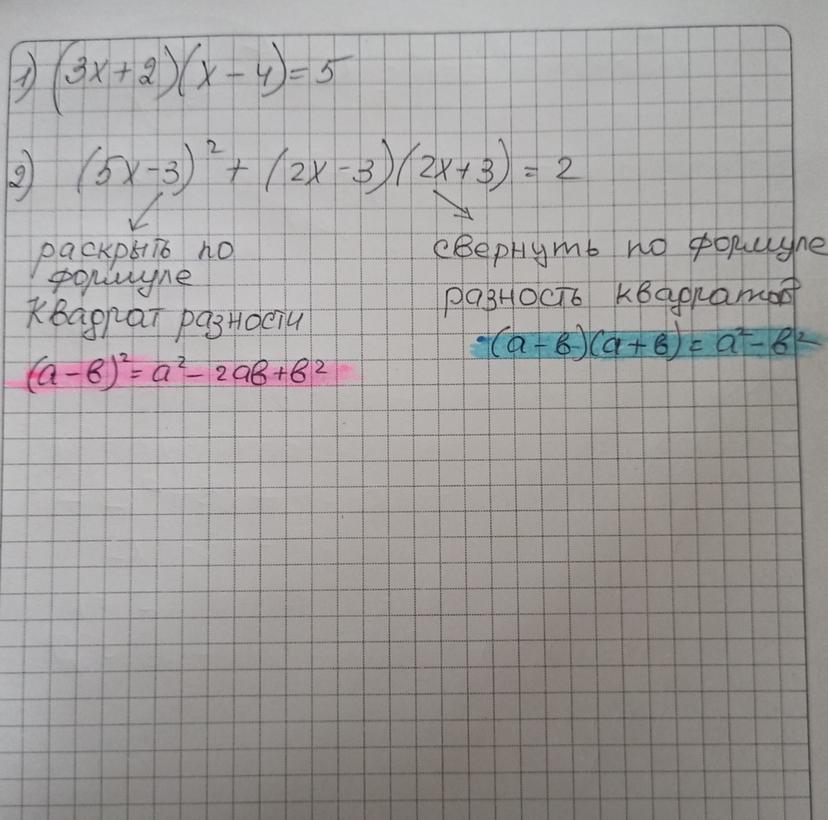 1) (3x+2)(x-4)=5
2) (5x-3)² + (2x-3)(2x+3) = 2
раскрыть по
формуле
Квадрат разности
(a-в)²=a²-2aв+в²
свернуть по формуле
разность квадратов
(a-в)(a+в)=a²-в²